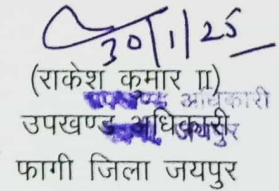 30/1/25
(राकेश कुमार II)
उपखण्ड अधिकारी
उपखण्ड अधिकारी
जयपुर
फागी जिला जयपुर